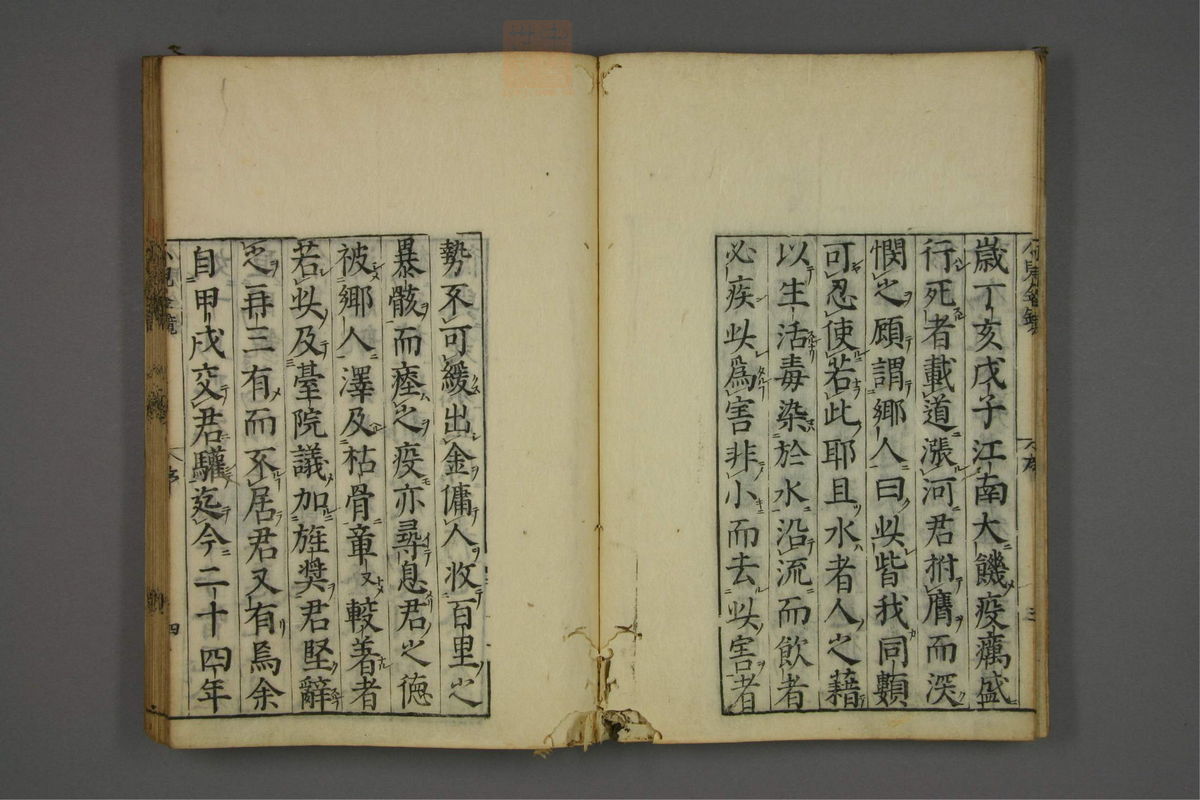 歳丁亥戊子江南大饑疫癘盛
行死者載道漲河君拊膺而深
憫之顧謂郷人曰此皆我同類
可忍使若此耶且水者人之藉
以生活毒染於水沿流而飲者
必疾此為害非小而去此害者
勢不可緩出金傭人收百里之
暴骸而瘞之疫亦尋息君之徳
被郷人澤及枯骨章又較著者
若此及臺院議加旌奨君堅辭
之再三有而不居君又有焉余
自甲戌交君驩迄今二十四年